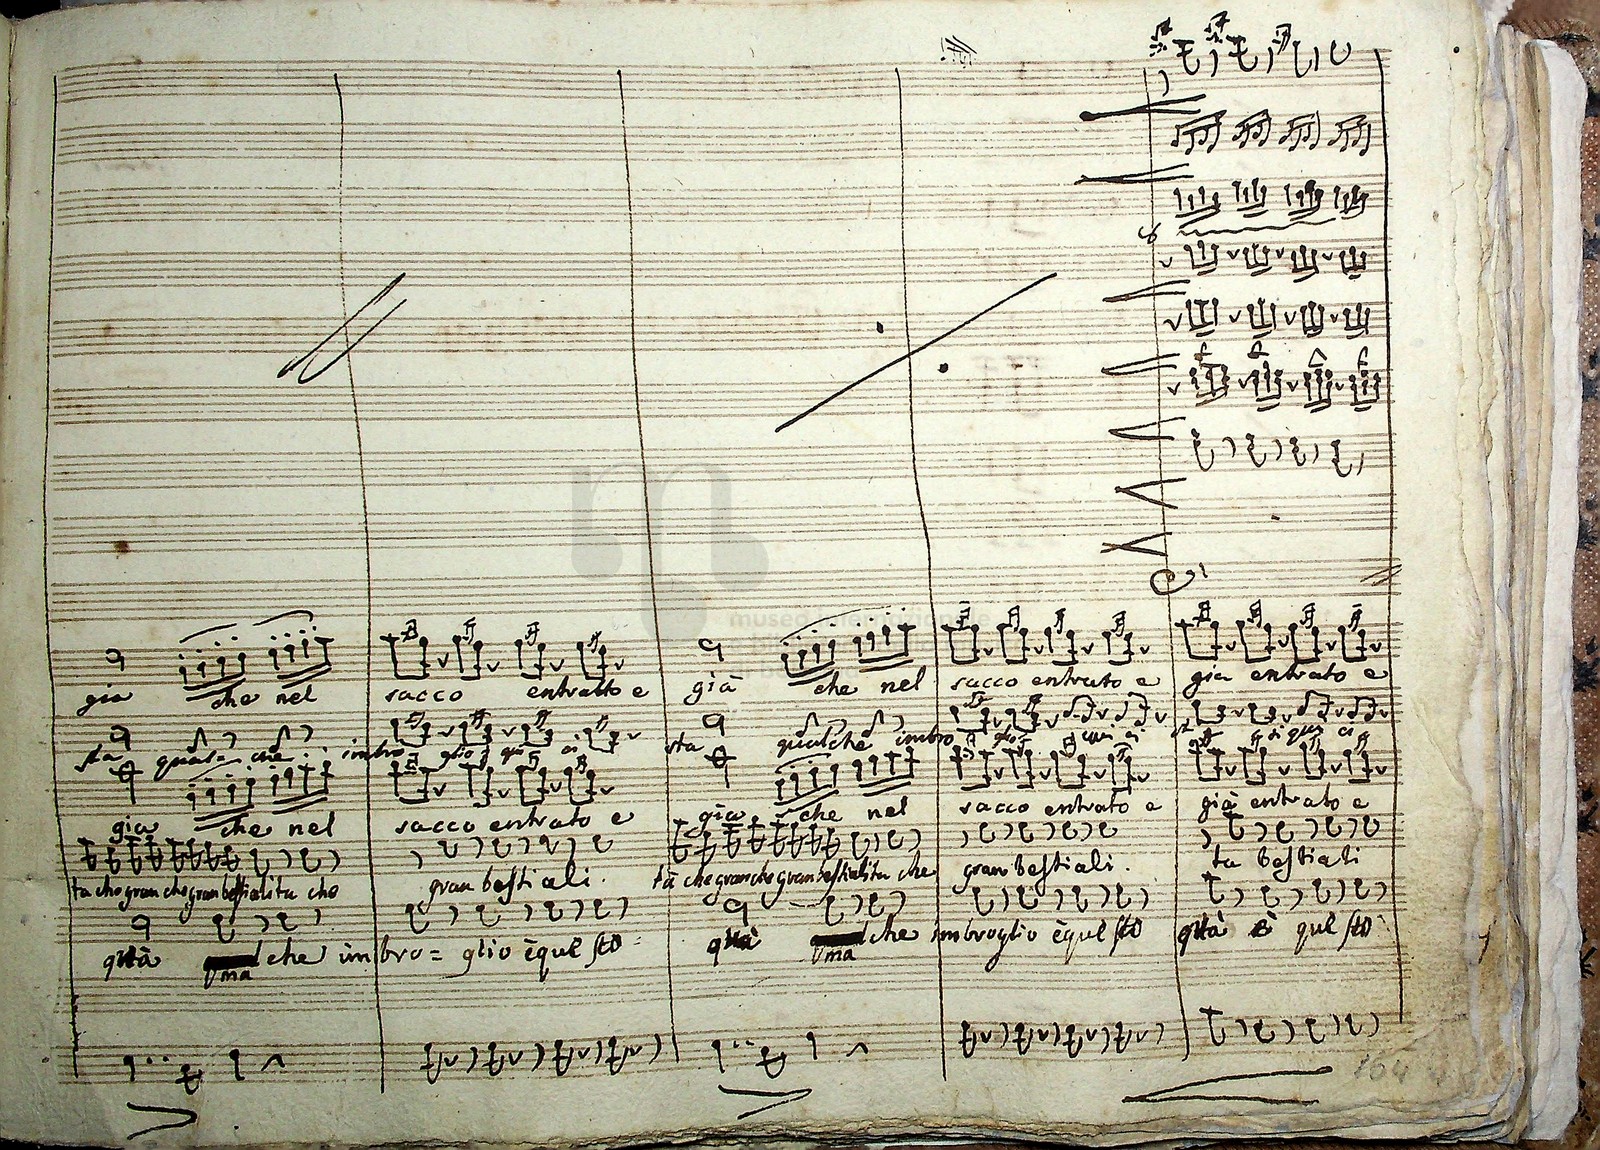 museo internazionale
già che nel sacco entratto e già che nel sacco entrato e gia entrato e
sta qual= che imbro glio qui ci sta qualche imbro glio qui ci st ci qui ci
gia che nel sacco entrato e già che nel sacco entrato e già entrato e
ta che gran che gran bestialita che gran bestiali. tà che gran che gran bestialita che gran bestiali. ta bestiali
quà ma che imbro= glio è quel sto= quà ma che imbroglio è quel sto quà è quel sto
164